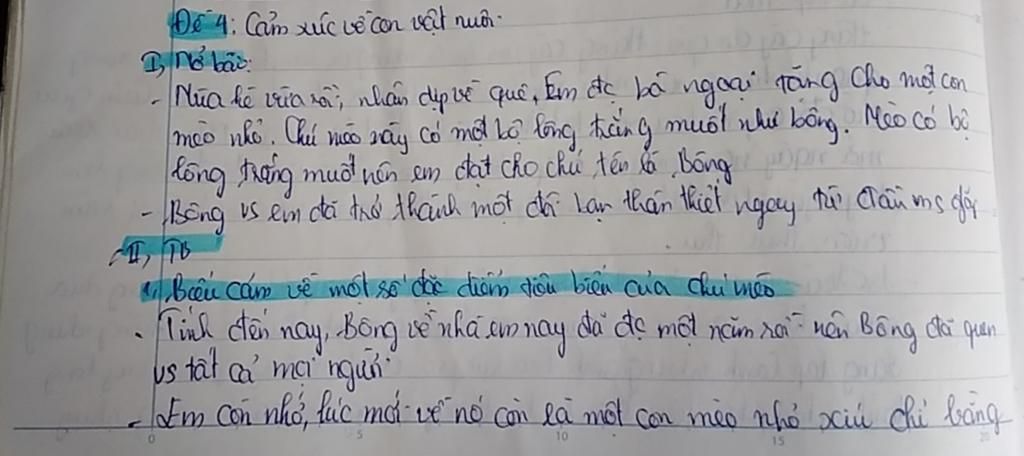 Đề 4: Cảm xúc về con vật nuôi.
I, Mở bài:
- Mùa hè vừa rồi, nhân dịp về quê, Em đc bà ngoại tặng cho một con
mèo nhỏ. Chú mèo này có một bộ lông trắng muốt như bông. Mèo có bộ
lông trắng muốt nên em đặt cho chú tên là Bông
- Bông vs em đã trở thành một đôi bạn thân thiết ngay từ
II, TB
1, Biểu cảm về một số đặc điểm tiêu biểu của chú mèo
- Tính đến nay, Bông về nhà em nay đã đc một năm rồi nên Bông đã quen
vs tất cả mọi người.
- Em còn nhớ, lúc mới về nó còn là một con mèo nhỏ xíu chỉ bằng
0 5 10 15 20